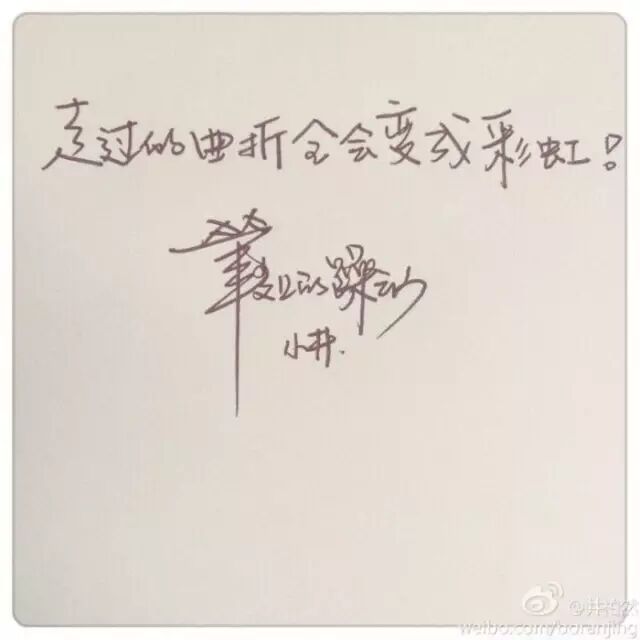 走过的曲折全会变成彩虹！
的躁动
小井.
@井柏然
weibo.com/boranjing